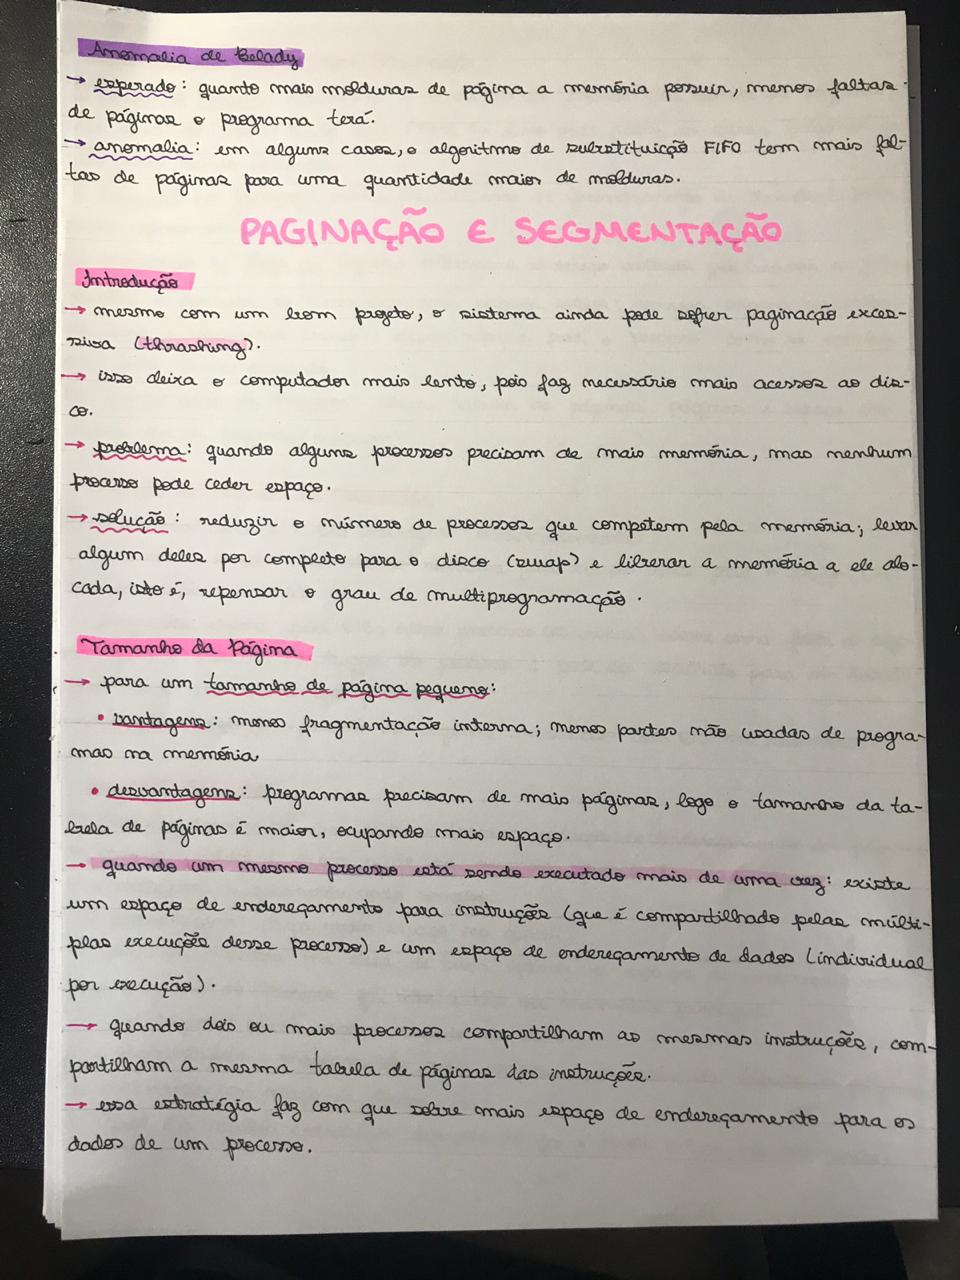 Anomalia de Belady
→ esperado: quanto mais molduras de página a memória possuir, menos faltas
de páginas o programa terá.
→ anomalia: em alguns casos, o algoritmo de substituição FIFO tem mais fal-
tas de páginas para uma quantidade maior de molduras.
PAGINAÇÃO E SEGMENTAÇÃO
Introdução
→ mesmo com um bom projeto, o sistema ainda pode sofrer paginação exces-
siva (thrashing).
→ isso deixa o computador mais lento, pois faz necessário mais acessos ao dis-
co.
→ problema: quando alguns processos precisam de mais memória, mas nenhum
processo pode ceder espaço.
→ solução: reduzir o número de processos que competem pela memória; levar
algum deles por completo para o disco (swap) e liberar a memória a ele alo-
cada, isto é, repensar o grau de multiprogramação.
Tamanho da Página
→ para um tamanho de página pequeno:
• vantagens: menos fragmentação interna; menos partes não usadas de progra-
mas na memória
• desvantagens: programas precisam de mais páginas, logo o tamanho da ta-
bela de páginas é maior, ocupando mais espaço.
→ quando um mesmo processo está sendo executado mais de uma vez: existe
um espaço de endereçamento para instruções (que é compartilhado pelas múlti-
plas execuções desse processo) e um espaço de endereçamento de dados (individual
por execução).
→ quando dois ou mais processos compartilham as mesmas instruções, com-
partilham a mesma tabela de páginas das instruções.
→ essa estratégia faz com que sobre mais espaço de endereçamento para os
dados de um processo.